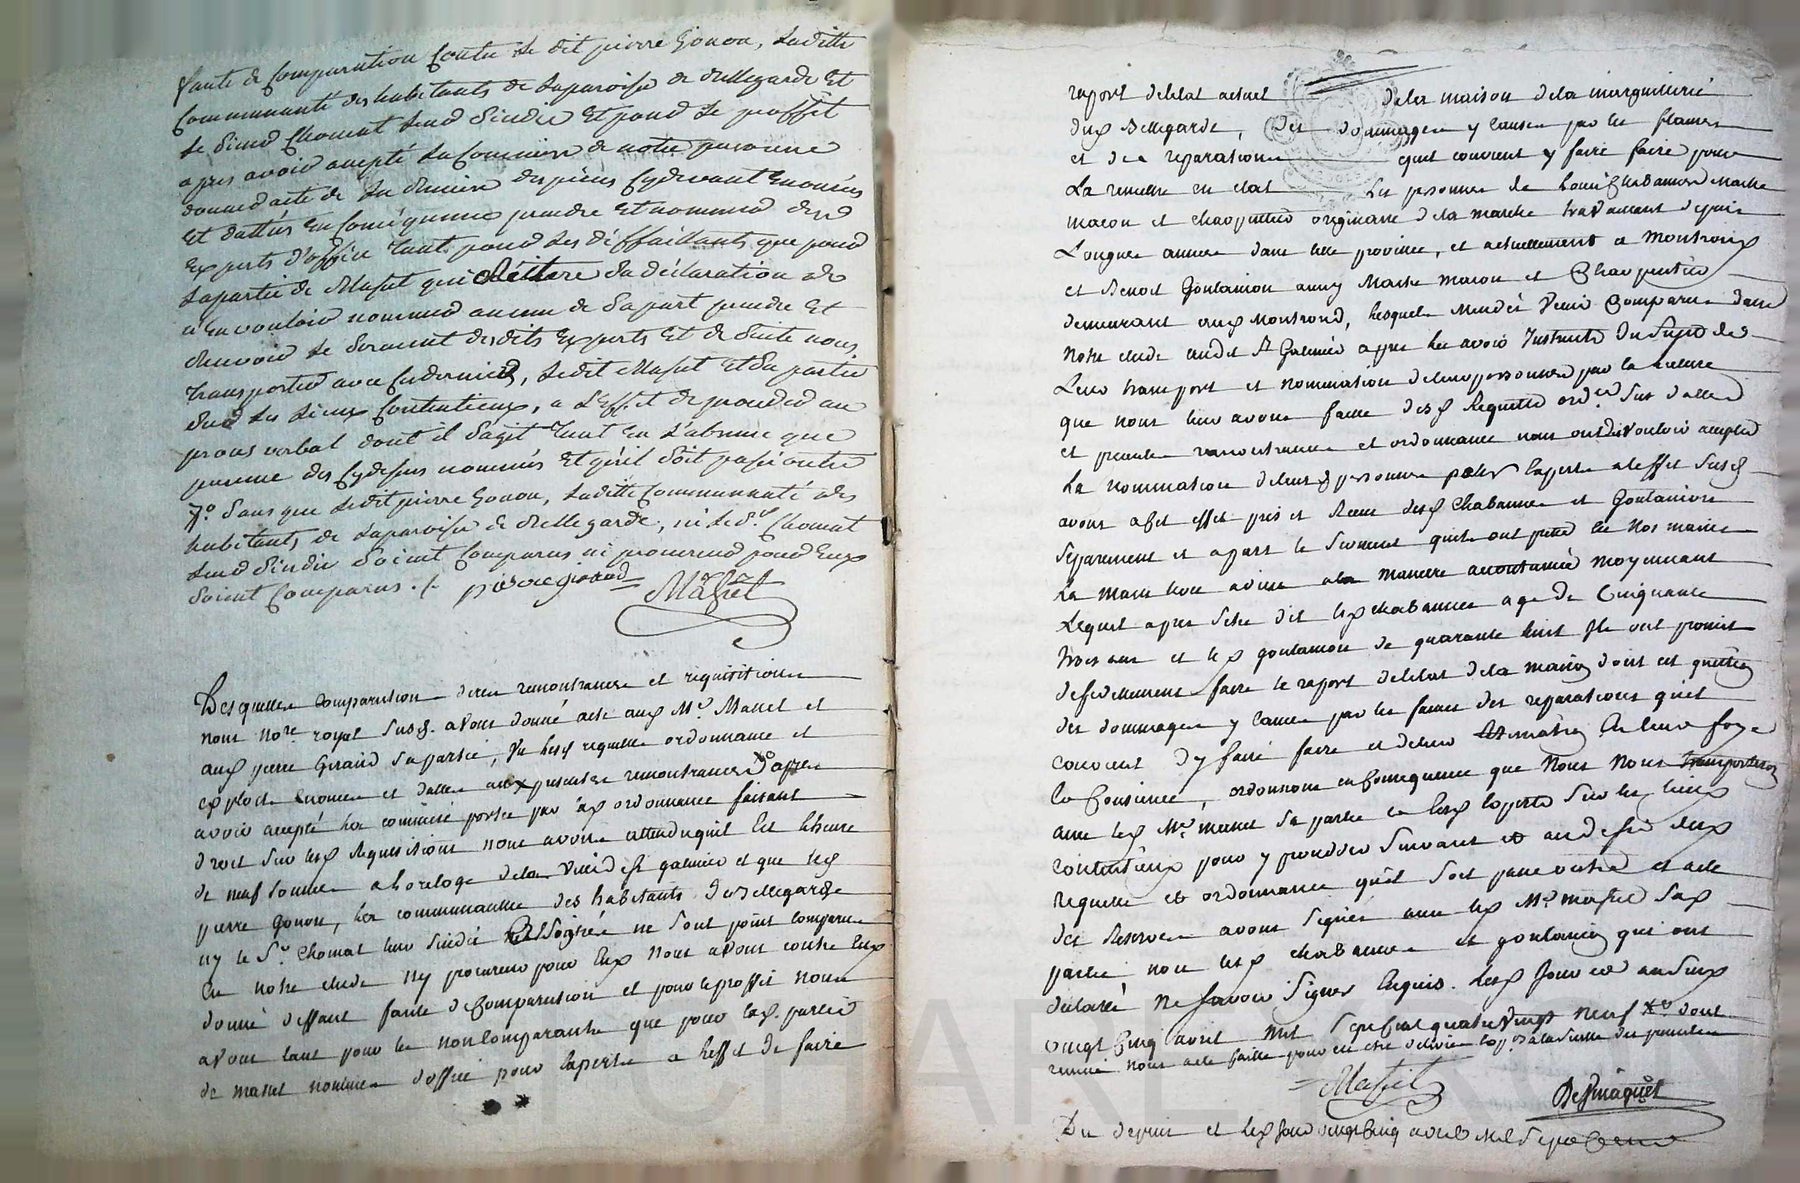 faute de Comparution Contre le dit pierre Gonon, Laditte
Communauté des habitants de Laparoisse de Bellegarde Et
le Sieur Chomat leur Sindic Et pour le proffit
apres avoir accepté La Commission de notre personne
donner acte de La Remise des pièces Cydevant Enoncées
Et dattées En Conséquence prendre Et nommer deux
Experts d'office tant pour Les deffaillants que pour
Lapartie de Maset qui Réitere Sa déclaration de
n'en vouloir nommer aucun de Sa part prendre Et
Recevoir le Serment desdits Experts Et de Suite nous
transporter avec Cedernier, Ledit Maset Et Sa partie
sur Les Lieux Contentieux, a L'Effet de proceder au
proces verbal dont il S'agit tant En L'absence que
presence des Cydessus nommés Et qu'il Soit passé outre
Sans que Ledit pierre Gonon, Laditte Communauté des
habitants de Laparoisse de Bellegarde, ni le Sr. Chomat
leur Sindic Soient Comparus ni procureur pour Eux
Soient Comparus ./. pierre giraud Maset
Desquelles comparution dires remontrances et requisitions
nous nore. royal Susd. avons donné acte aud Me. Maset et
aud pierre Giraud Sa partie, Vu lesd requette ordonnance et
exploits Enoncés et dattés aux presentes remontrances apres
avoir accepté la commission portée par lad ordonnance faisant
droit Sur lesd Requisitions nous avons attendu quil Est lheure
de neuf Sonnée a horologe dela Ville de St galmier et que led
pierre Gonon, la communauté des habitants de Bellegarde
ny le Sr. Chomat leur Sindic ne Sont point comparus
En notre etude ny procureur pour Eux Nous avons contre Eux
donné deffaut faute de Comparution et pour le proffit nous
avons tant pour les non Comparants que pour lad. partie
de maset nommé doffice pour Experts a leffet de faire
raport de letat actuel de la maison de la marguillerie
dud Bellegarde, des dommages y causés par les flames
et des reparations quil convient y faire faire pour
La remettre en etat Les personnes de Louis Chabannes Maitre
macon et charpentier originaire de la marche travaillant depuis
Longues années dans cette province, et actuellement a Montrond
et Benoit Goutanion aussy Maitre Macon et Charpentier
demeurant aud Montrond, lesquels Mandés Venir Comparus dans
Notre etude audit St Galmier apres les avoir Instruits du Sujet de
Leur transport et nomination de leurs personnes par la lecture
que nous leur avons faitte desd Requette ordce Sus dattée
et presente remontrance et ordonnance nous ont dit vouloir accepter
La nomination de leurs personnes pour Experts a leffet Susd
avons a Cet effet pris et Receu desd Chabannes et Goutanion
Separement et apart le Serment quils ont pretté En Nos mains
La main levée a dieu a la maniere accoutumée moyennant
Lequel apres Setre dit led chabannes agé de Cinquante
trois ans et led goutanion de quarante huit Ils ont promis
de fidellement faire le raport de letat de la maison dont est question
des dommages y causés par les flames des reparations quil
convient dy faire faire et de leur En leur foy et
Conscience, ordonnons en Consequence que Nous Nous transporterons
avec led Me. maset Sa partie et lesd Experts Sur les lieux
contentieux pour y proceder Suivant et au desir desd
requette et ordonnance quil Soit passé outre et acte
des Reserves avons Signé avec led Me. maset Sad
partie non lesd chabannes et goutanion qui ont
declaré ne Savoir Signer Enquis. lesd Jour et an Sud
vingt Cinq avril mil Sept cent quatre vingt neuf dont
Maset DesJmaquet
Du depuis et led Jour vingt Cinq avril mil Sept Cent